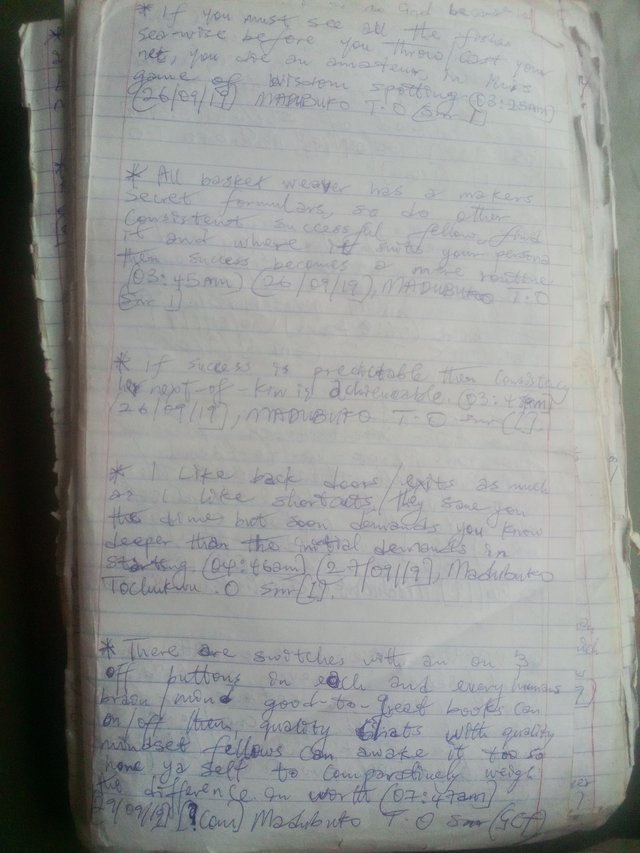 and because
* If you must see all the fishes
sea-wise before you throw/cast your
net, you are an amateur, in this
game of wisdom spotting (03:28am)
(26/09/19) MADUBUKO T.O Snr I]
* All basket weaver has a makers
secret formulars, so do other
consistent successful fellow, find
it and where it suits your persona
then success becomes a mere routine
(03:45am) (26/09/19), MADUBUKO T.O
Snr I]
* If success is predictable then consistency
her next-of-kin is achievable. (03:48am)
[26/09/19], MADUBUKO T.O Snr [I].
* I like back doors/exits as much
as I like shortcuts, they save you
the time but soon demands you know
deeper than the initial demands in
starting. (04:46am] (27/09/19], Madubuko
Tochukwu .O Snr [I].
* There are switches with an on &
off buttons in each and every humans
brain/mind good-to-great books can
on/off them, quality chats with quality
mindset fellows can awake it too so
hone ya self to comparatively weigh
the difference in worth (07:47am]
29/09/19] Madubuko T.O Snr